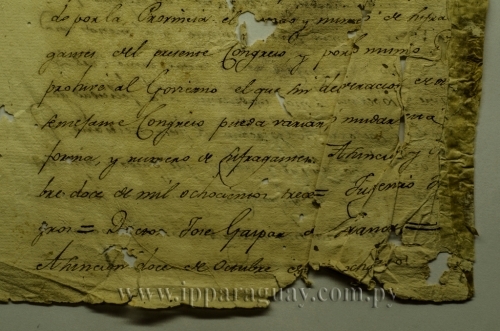 de por la Provincia el modo y numero de sufra
gantes del presente Congreso y por lo mismo
prohive al Govierno el que sin deliveracion de
semejante Congreso pueda variar, o mudar esta
forma, y numero de sufragantes. Asuncion y
bre doce de mil ochocientos trece = Fulgencio Y
gros = Doctor Jose Gaspar de Franc =
Asuncion doce de Octubre de
www.ipparaguay.com.py